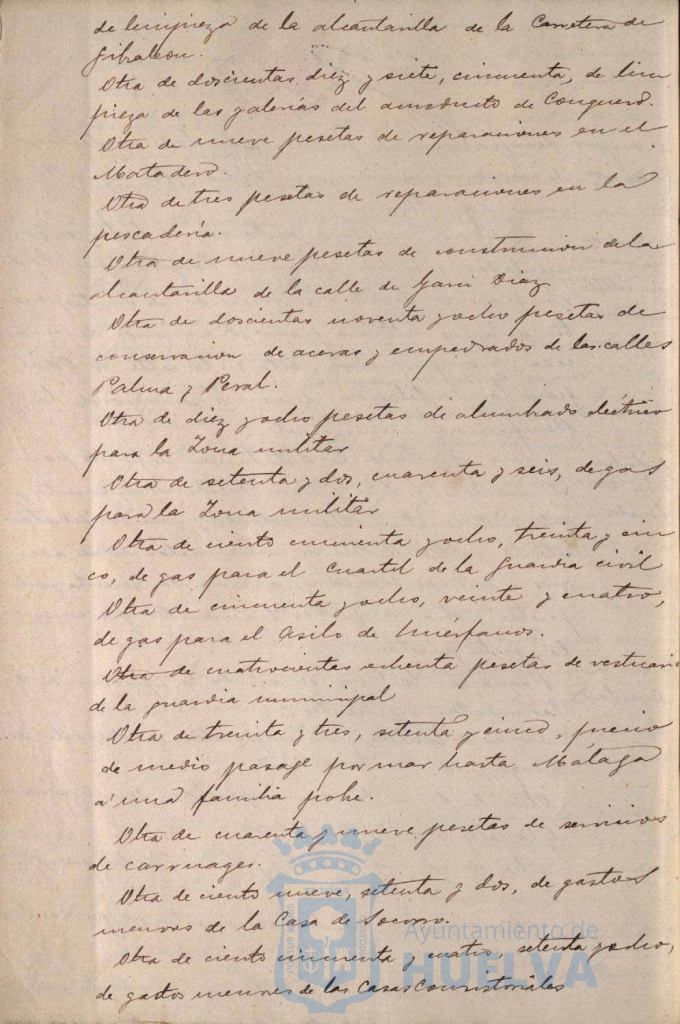 de limpieza de la alcantarilla de la Carretera de
Gibraleon.
Otra de doscientas diez y siete, cincuenta, de lim
pieza de las galerías del acueducto de Conquero.
Otra de nueve pesetas de reparaciones en el
Matadero.
Otra de tres pesetas de reparaciones en la
pescadería.
Otra de nueve pesetas de construccion de la
alcantarilla de la calle de Garci Diaz
Otra de doscientas noventa y ocho pesetas de
conservacion de aceras y empedrados de las calles
Palma y Peral.
Otra de diez y ocho pesetas de alumbrado eléctrico
para la Zona militar
Otra de setenta y dos, cuarenta y seis, de gas
para la Zona militar
Otra de ciento cincuenta y ocho, treinta y cin
co, de gas para el Cuartel de la Guardia civil
Otra de cincuenta y ocho, veinte y cuatro,
de gas para el Asilo de huérfanos.
Otra de cuatrocientas ochenta pesetas de vestuario
de la guardia municipal
Otra de treinta y tres, setenta y cinco, precio
de medio pasage por mar hasta Málaga
á una familia pobre.
Otra de cuarenta y nueve pesetas de servicios
de carruages.
Otra de ciento nueve, setenta y dos, de gastos
menores de la Casa de Socorro.
Otra de ciento cincuenta y cuatro, setenta y ocho,
de gastos menores de las Casas Consistoriales
Ayuntamiento de
HUELVA